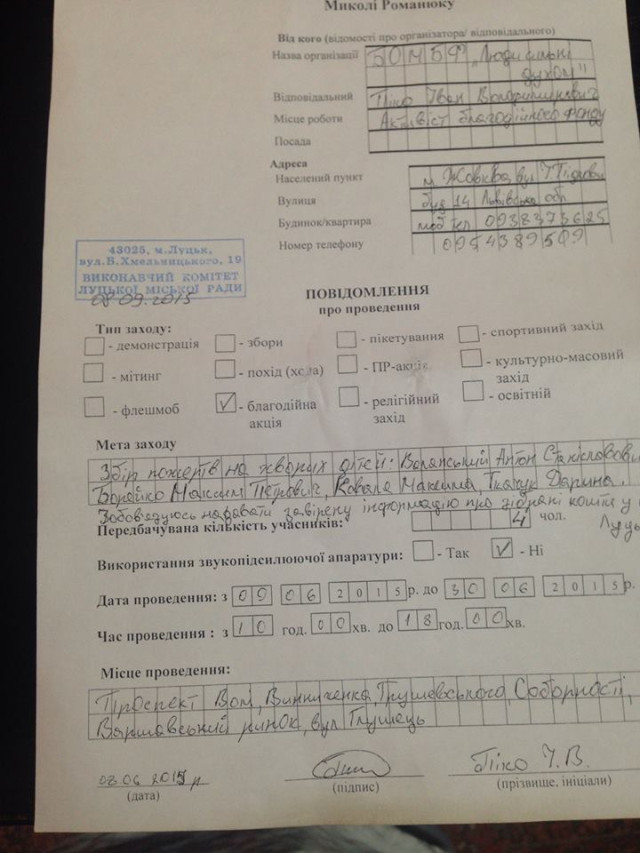 Миколі Романюку
Від кого (відомості про організатора/ відповідального)
Назва організації БОМБФ "Люди сильні
духом"
Відповідальний Піко Іван Володимирович
Місце роботи Активіст благодійного фонду
Посада
Адреса
Населений пункт м Жовква вул
Вулиця буд 14 Львівська обл
Будинок/квартира моб тел 0938373625
Номер телефону 0954389509
43025, м.Луцьк,
вул.Б.Хмельницького, 19
ВИКОНАВЧИЙ КОМІТЕТ
ЛУЦЬКОЇ МІСЬКОЇ РАДИ
08.09.2015
ПОВІДОМЛЕННЯ
про проведення
Тип заходу:
- демонстрація - збори - пікетування - спортивний захід
- мітинг - похід (хода) - ПР-акція - культурно-масовий
захід
- флешмоб - благодійна - релігійний - освітній
акція захід
Мета заходу
Збір пожертв на хворих дітей: Волянський Антон Станіславович
Максим Петрович, Коваля Максима, Ткачук Дарина.
Зобов'язуюсь надавати завірену інформацію про зібрані кошти у
Передбачувана кількість учасників: 4 чол.
Використання звукопідсилюючої апаратури: - Так V - Ні
Дата проведення: з 09 06 2015 р. до 30 06 2015 р.
Час проведення : з 10 год. 00 хв. до 18 год. 00 хв.
Місце проведення:
Проспект Волі, Винниченка, Грушевського, Соборності,
Варшавський ринок, вул Глушець
08.06 2015 р Піко І.В.
(дата) (підпис) (прізвище, ініціали)